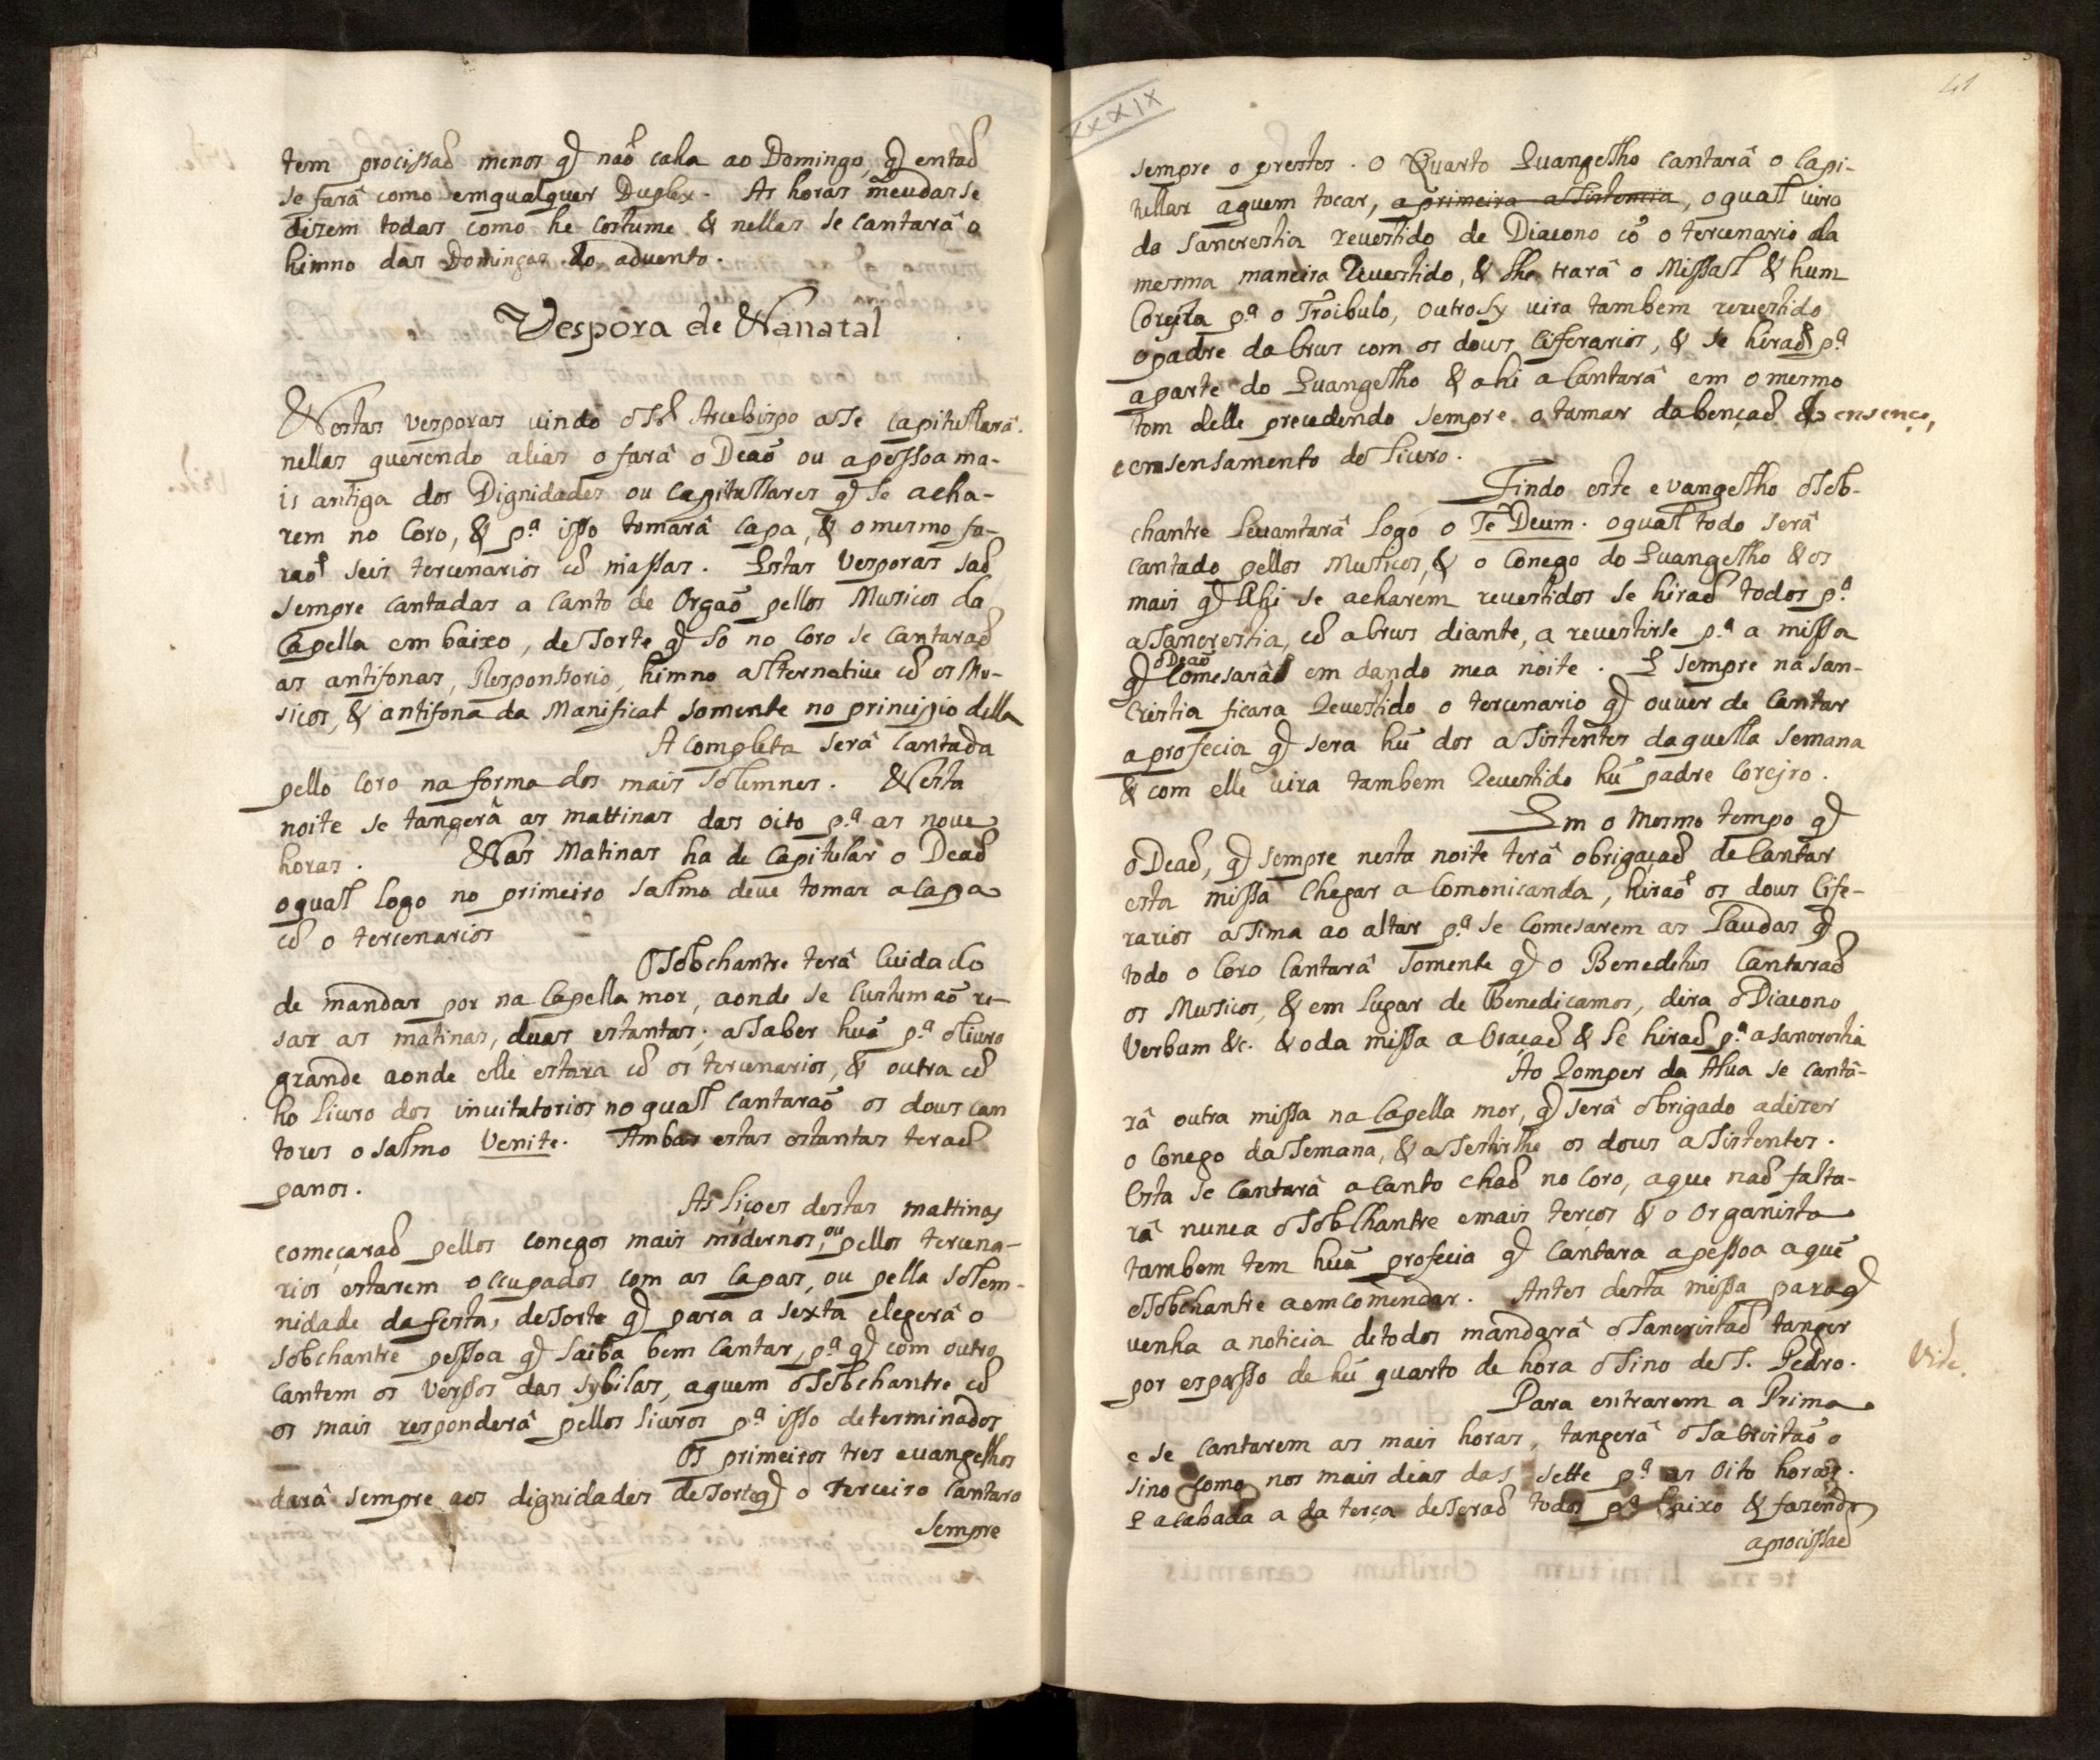 tem procissaõ menos q̃ naõ caha ao Domingo, q̃ entaõ
se farâ como emqualquer Duplex. As horas meudas se
dizem todas como he costume & nellas se cantarâ o
himno das Domingas do advento.
Vespora de Nanatal
Nestas vesporas uindo o Sr̃ Arcebispo a Se capitullarâ
nellas querendo alias o farâ o Deaõ ou a pessoa ma-
is antiga dos Dignidades ou Capitullares q̃ se acha-
rem no Coro, & p.ª isso tomarâ capa, & o mesmo fa-
raõ seis tercenarios cõ massas. Estas Vesporas saõ
sempre cantadas a Canto de Orgaõ pellos Musicos da
Capella em baixo, de sorte q̃ só no Coro se Cantaraõ
as antifonas, Responsorio, himno alternative cõ os Mu-
sicos, & antifona da Manificat somente no principio della
A completa serâ cantada
pello Coro na forma dos mais solemnes. Nesta
noite se tangerâ as mattinas das oito p.ª as noue
horas. Nas Matinas ha de Capitular o Deaõ
o qual logo no primeiro salmo deue tomar a capa
cõ o tercenarios
O Sobchantre terâ Cuidado
de mandar por na Capella mor, aonde se custumaõ re-
sar as matinas, duas estantas; a saber huã p.ª o liuro
grande aonde elle estara cõ os tercenarios, & outra cõ
ho liuro dos inuitatorios no qual cantaraõ os dous can
tores o salmo Venite. Ambas estas estantas teraõ
panos.
As liçoes destas mattinas
começaraõ pellos conegos mais modernos, ou pellos tercena-
rios estarem occupados com as capas, ou pella solem-
nidade da festa, de sorte q̃ para a sexta elegerâ o
sobchantre pessoa q̃ saiba bem Cantar, p.ª q̃ com outro
cantem os Versos das sybilas, a quem o Sobchantre cõ
os mais responderâ pellos liuros p.ª isso determinados
Os primeiros tres euangelhos
darâ sempre aos dignidades de sorte q̃ o terceiro Cantaro
sempre
XXXIX
41
sempre o prestes. O Quarto Euangelho cantarâ o Capi-
tullar a quem tocar, a primeira assistencia, o qual vira
da sancrestia reuestido de Diacono cõ o tercenario da
mesma maneira Reuestido, & lhe trarâ o Missal & hum
Coreista p.ª o Troibulo, outro sy uira tambem reuestido
o padre da Crus com os dous Ciferarios, & se hiraõ p.ª
a parte do Euangelho & ahi a Cantarâ em o mesmo
tom delle precedendo sempre o tamar da bençaõ do ensenço,
e emsensamento do liuro.
Findo este evangelho o Sob-
chantre Leuantarâ logo o Te Deum. o qual todo serâ
cantado pellos Musicos, & o Conego do Euangelho & os
mais q̃ Ahi se acharem reuestidos se hiraõ todos p.ª
a Sancrestia, cõ a Crus diante, a reuestirse p.ª a missa
o Deaõ
q̃ Comesarâ em dando mea noite. E sempre na San-
Crestia ficara Reuestido o tercenario q̃ ouuer de Cantar
a profecia q̃ sera hũ dos asistentes daquella semana
& com elle uira tambem Reuestido hũ padre Corejro.
Em o mesmo tempo q̃
o Deaõ, q̃ sempre nesta noite terâ obrigaçaõ de Cantar
esta missa Chegar a Comonicanda, hiraõ os dous Cife-
rarios asima ao altar p.ª se Comesarem as Laudas q̃
todo o Coro Cantarâ somente q̃ o Benedictus Cantaraõ
os Musicos, & em lugar de Benedicamos, dira o Diacono
Verbum &c. & o da missa a Oraçaõ & se hiraõ p.ª a sancrestia
Ao Romper da Alua se cantâ-
râ outra missa na Capella mor, q̃ serâ obrigado a dizer
o Conego da Semana, & a sestirlhe os dous asistentes.
Esta se Cantarâ a Canto chaõ no Coro, a que naõ falta-
râ nunca o Sobchantre e mais terços & o Organista
tambem tem huã profecia q̃ Cantara a pessoa a quẽ
o Sobchantre a emcomendar. Antes desta missa para q̃
uenha a noticia de todos mandarâ o Sancristaõ tanger
por espasso de hũ quarto de hora o Sino de S. Pedro.
Vide.
Para entrarem a Prima
e se cantarem as mais horas, tangerâ o Sacristaõ o
sino como nos mais dias das sette p.ª as oito horas.
E acabada a da terça deseraõ todos p.ª baixo & fazendo
a procissaõ